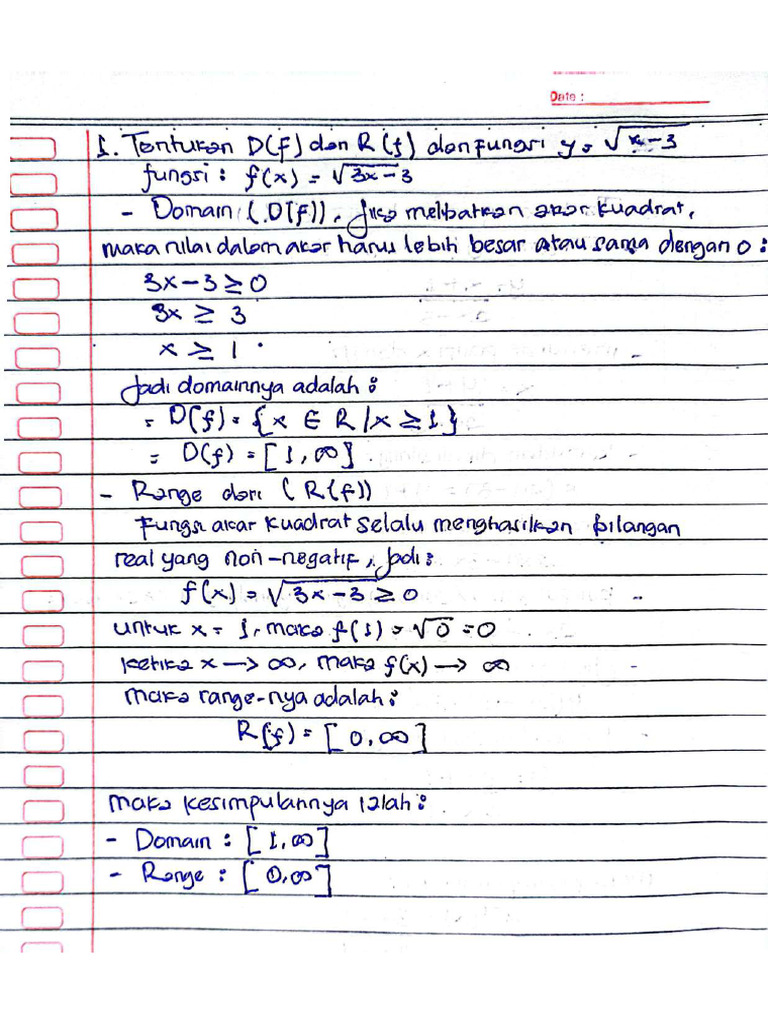 Date :
1. Tentukan D(f) dan R(f) dan fungsi y = √x-3
fungsi : f(x) = √3x-3
- Domain (D(f)), jika melibatkan akar kuadrat,
maka nilai dalam akar harus lebih besar atau sama dengan 0 :
3x-3 ≥ 0
3x ≥ 3
x ≥ 1
Jadi domainnya adalah :
= D(f) = {x ∈ R / x ≥ 1}
= D(f) = [1, ∞]
- Range dari (R(f))
Fungsi akar kuadrat selalu menghasilkan bilangan
real yang non-negatif, jadi :
f(x) = √3x-3 ≥ 0
untuk x = 1, maka f(1) = √0 = 0
ketika x → ∞, maka f(x) → ∞
maka range-nya adalah :
R(f) = [0, ∞]
maka kesimpulannya ialah :
- Domain : [1, ∞]
- Range : [0, ∞]